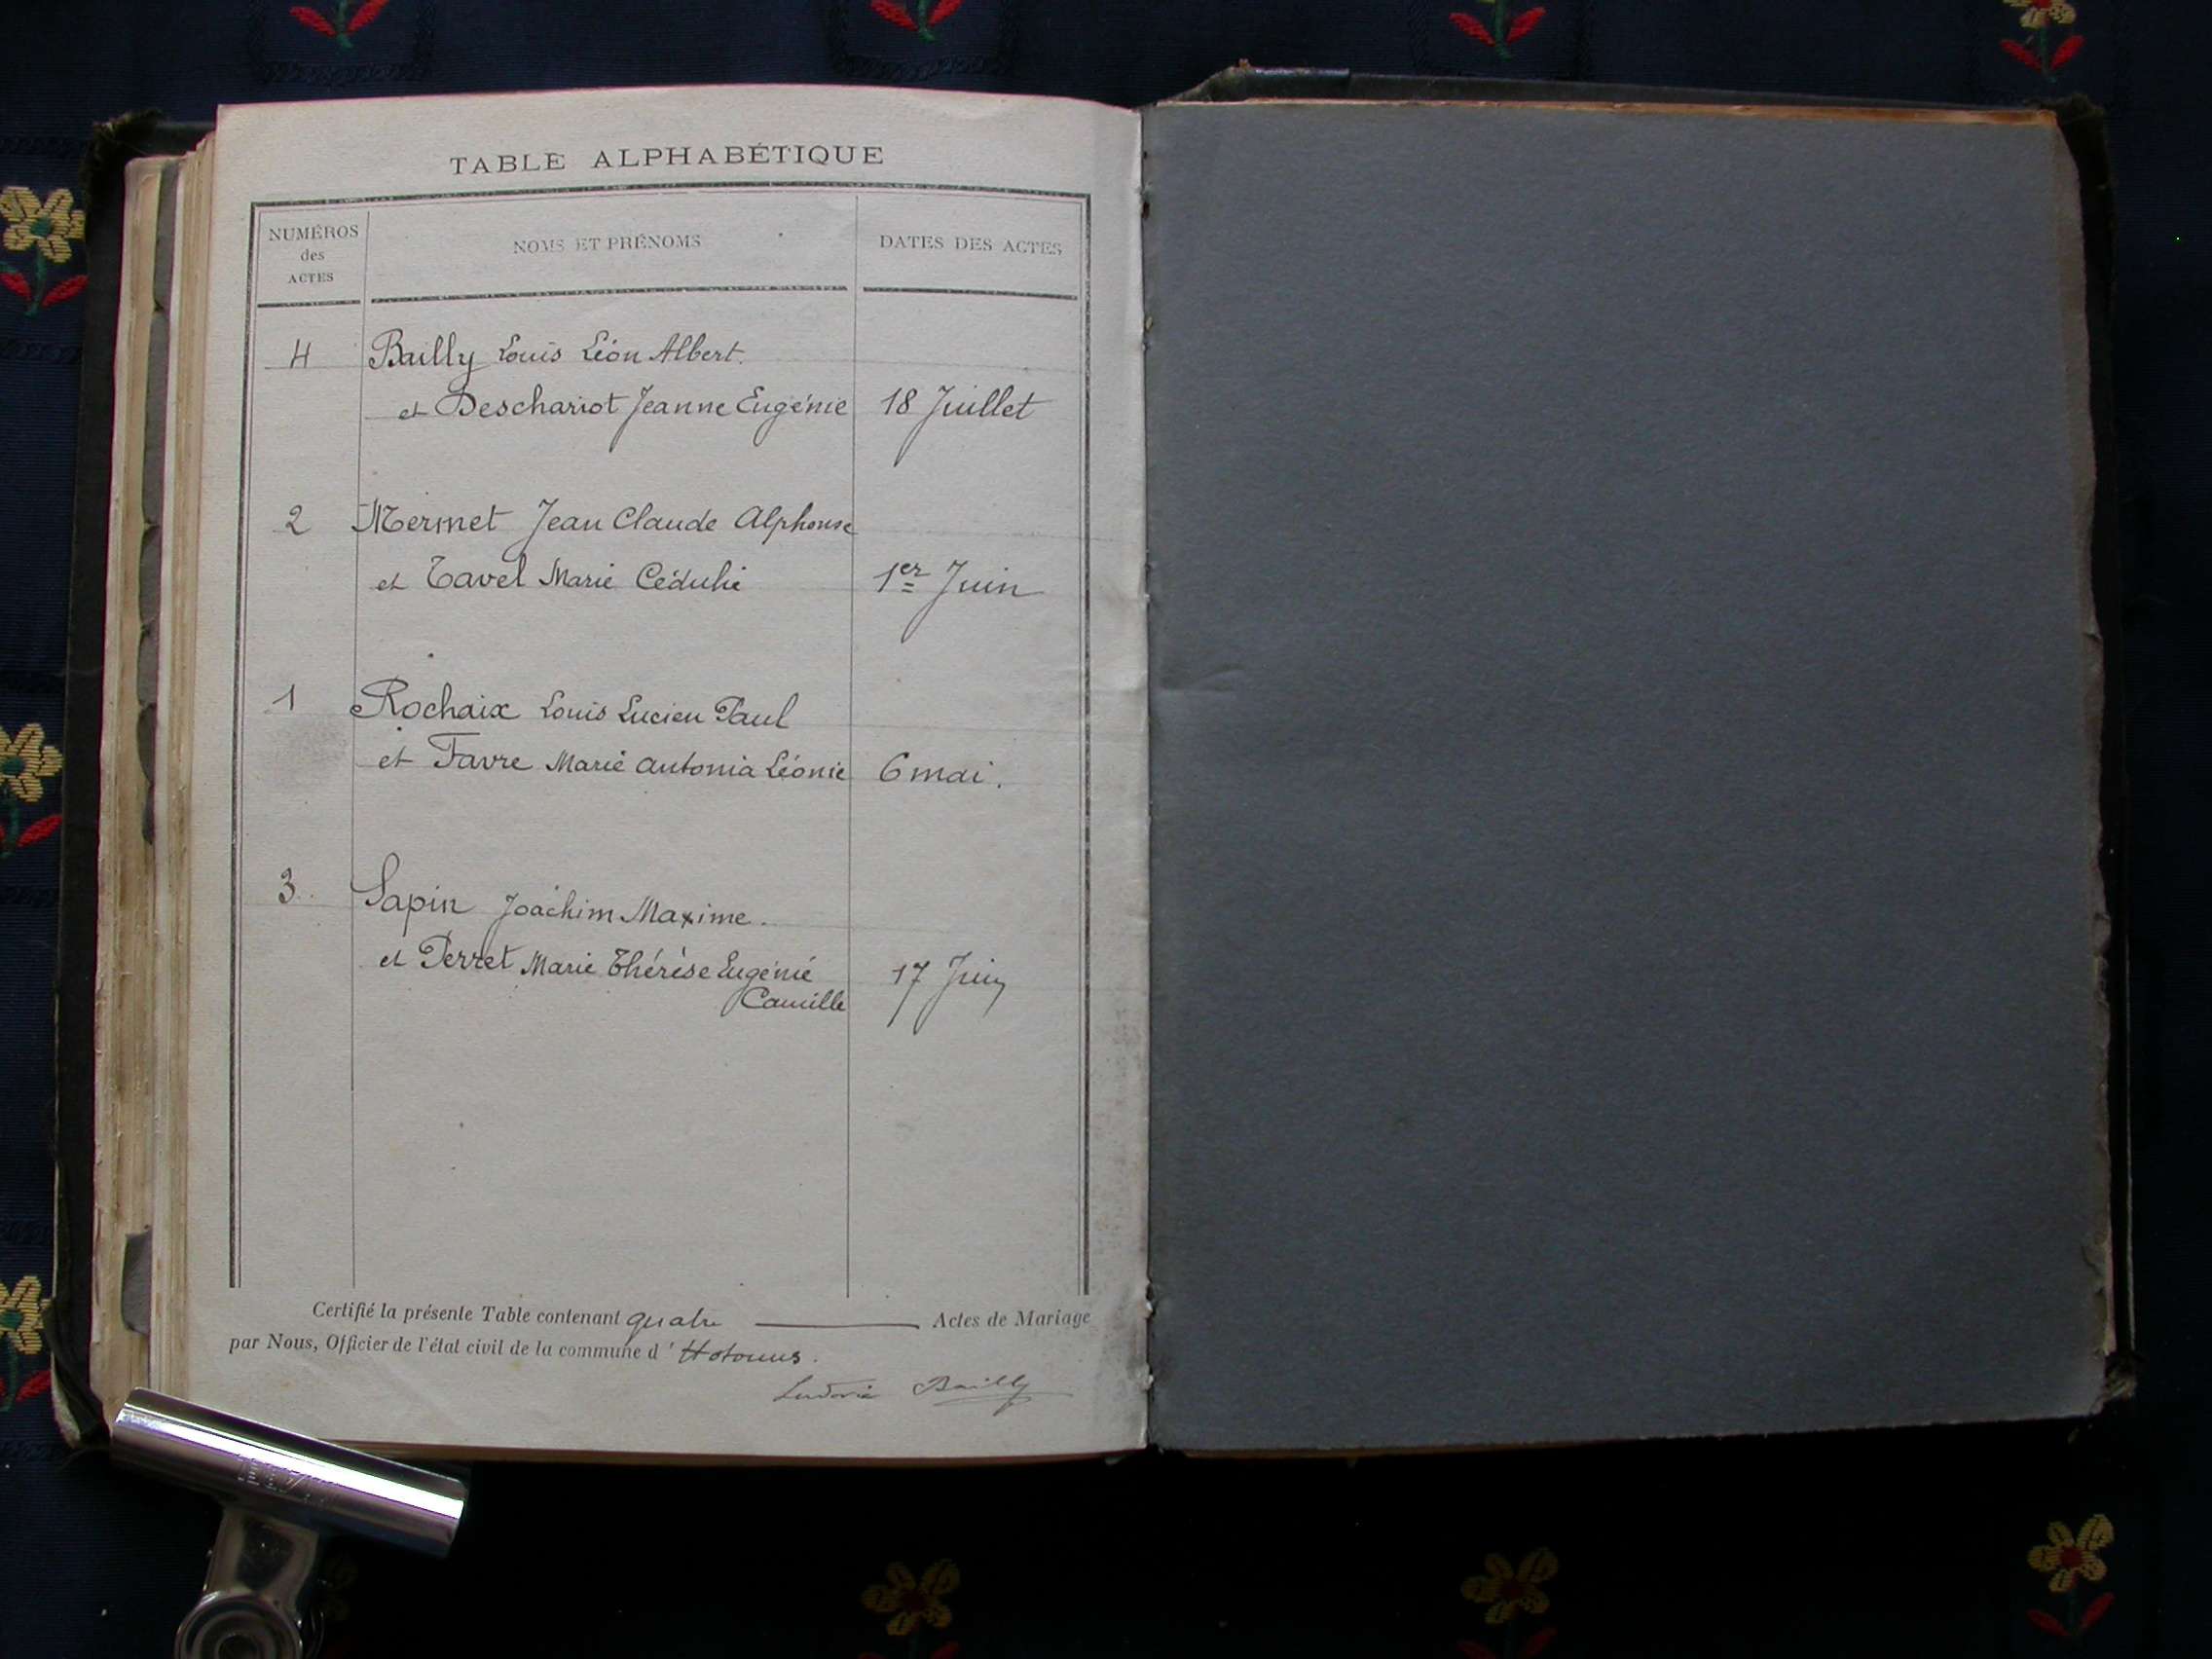 TABLE ALPHABÉTIQUE
NUMÉROS
des
ACTES
NOMS ET PRÉNOMS
DATES DES ACTES
4 Bailly Louis Léon Albert.
et Deschariot Jeanne Eugénie 18 Juillet
2 Mermet Jean Claude Alphonse
et Tavel Marie Cédulie 1er Juin
1 Rochaix Louis Lucien Paul
et Favre Marie Antonia Léonie 6 mai.
3. Sapin Joachim Maxime.
et Perret Marie Thérèse Eugénie 17 Juin
Camille
Certifié la présente Table contenant quatre Actes de Mariage
par Nous, Officier de l'état civil de la commune d'Hotonnes.
Ludovic Bailly